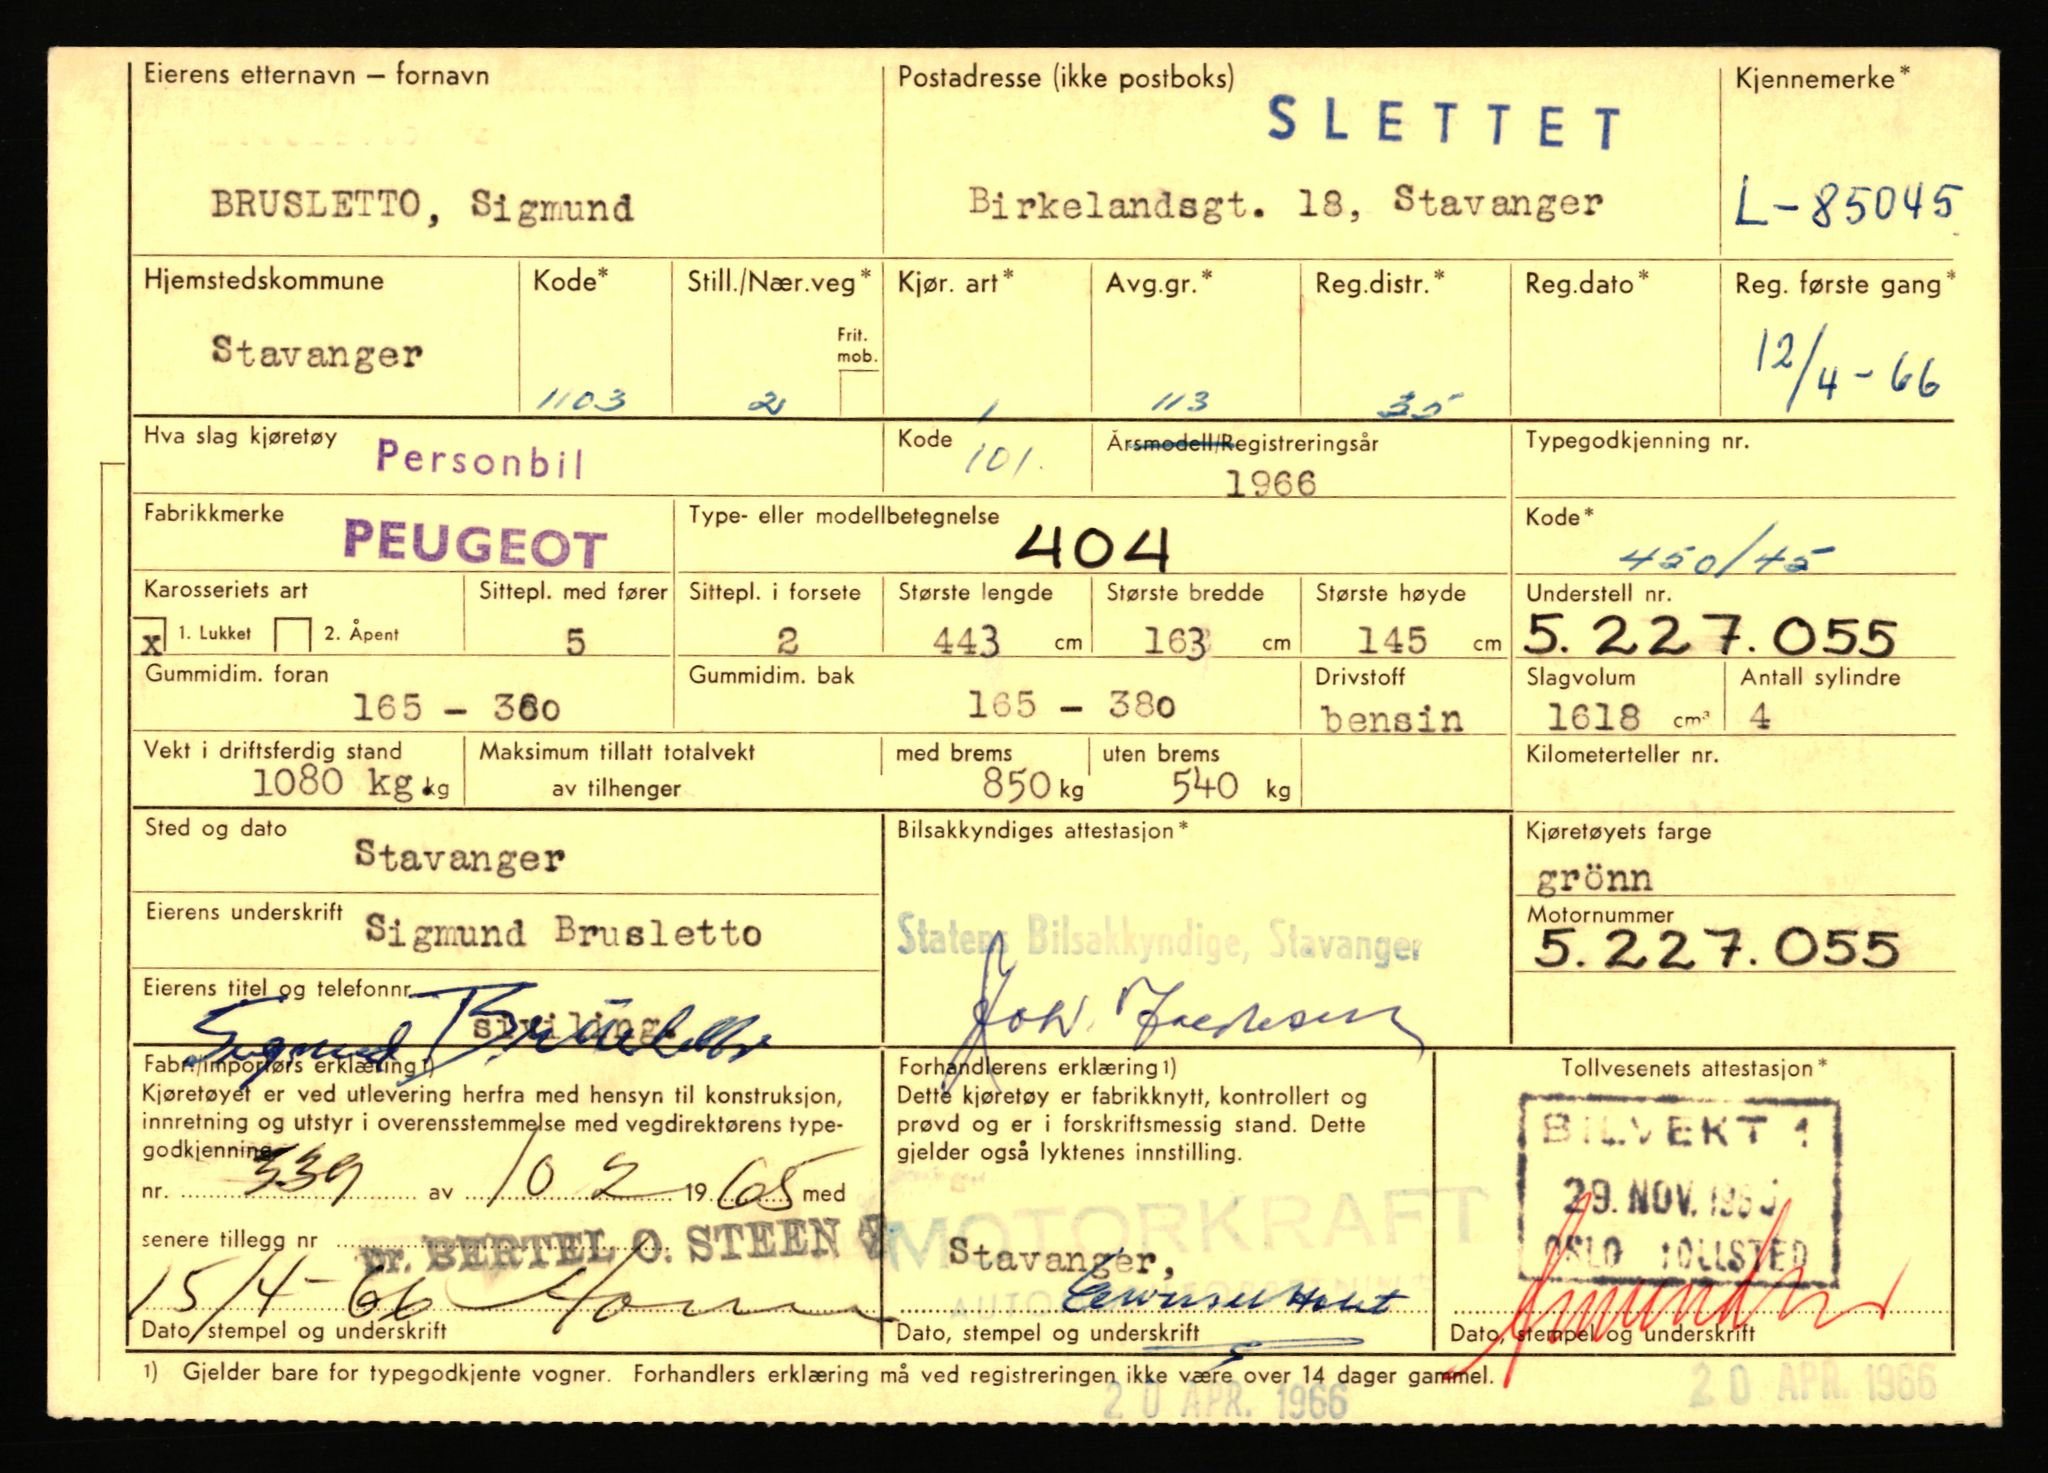 Eierens etternavn – fornavn
Postadresse (ikke postboks)
Kjennemerke*
SLETTET
BRUSLETTO, Sigmund
Birkelandsgt. 18, Stavanger
L-85045
Hjemstedskommune
Kode*
Still./Nær.veg*
Kjør. art*
Avg.gr.*
Reg.distr.*
Reg.dato*
Reg. første gang*
Stavanger
Frit. mob.
1103
2
1
113
35
12/4-66
Hva slag kjøretøy
Personbil
Kode
101.
Årsmodell/Registreringsår
1966
Typegodkjenning nr.
Fabrikkmerke
PEUGEOT
Type- eller modellbetegnelse
404
Kode*
450/45
Karosseriets art
Sittepl. med fører
Sittepl. i forsete
Største lengde
Største bredde
Største høyde
Understell nr.
x 1. Lukket
2. Åpent
5
2
443 cm
163 cm
145 cm
5.227.055
Gummidim. foran
165 – 380
Gummidim. bak
165 – 380
Drivstoff
bensin
Slagvolum
1618 cm³
Antall sylindre
4
Vekt i driftsferdig stand
1080 kg. kg
Maksimum tillatt totalvekt
av tilhenger
med brems
850 kg
uten brems
540 kg
Kilometerteller nr.
Sted og dato
Stavanger
Bilsakkyndiges attestasjon*
Kjøretøyets farge
grönn
Eierens underskrift
Sigmund Brusletto
Statens Bilsakkyndige, Stavanger
Motornummer
5.227.055
Eierens titel og telefonnr.
siviling.
Sigmund Brusletto
Fabr./importørs erklæring 1)
Kjøretøyet er ved utlevering herfra med hensyn til konstruksjon,
innretning og utstyr i overensstemmelse med vegdirektørens type-
godkjenning
nr. 539 av 10 2 1965 med
senere tillegg nr
pr. BERTEL O. STEEN
15/4-66
Dato, stempel og underskrift
Forhandlerens erklæring 1)
Dette kjøretøy er fabrikknytt, kontrollert og
prøvd og er i forskriftsmessig stand. Dette
gjelder også lyktenes innstilling.
MOTORKRAFT
Stavanger,
Dato, stempel og underskrift
Tollvesenets attestasjon*
BILVEKT 1
29. NOV. 1965
OSLO TOLLSTED
Dato, stempel og underskrift
1) Gjelder bare for typegodkjente vogner. Forhandlers erklæring må ved registreringen ikke være over 14 dager gammel.
20 APR. 1966
20 APR. 1966